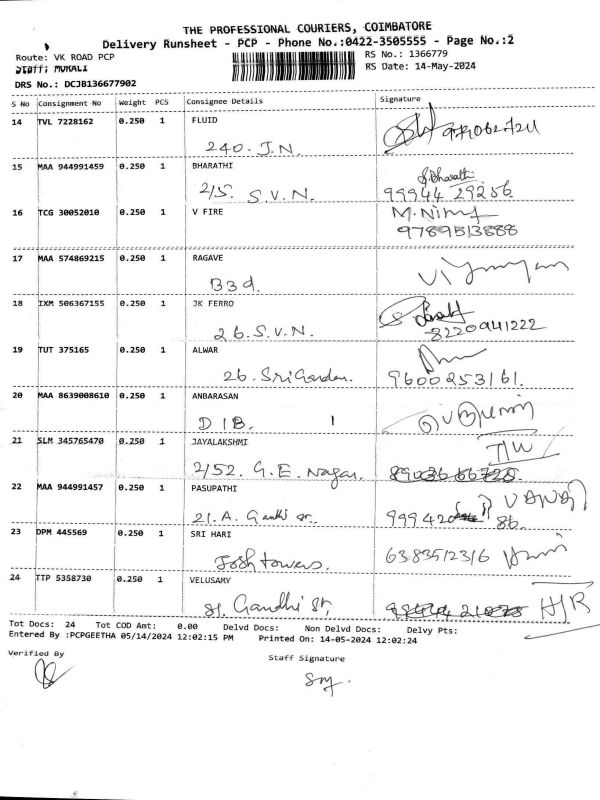 THE PROFESSIONAL COURIERS, COIMBATORE
Delivery Runsheet - PCP - Phone No.:0422-3505555 - Page No.:2
Route: VK ROAD PCP RS No.: 1366779
Staff: MURALI RS Date: 14-May-2024
DRS No.: DCJB136677902
S No Consignment No Weight PCS Consignee Details Signature
14 TVL 7228162 0.250 1 FLUID
240. J.N.
15 MAA 944991459 0.250 1 BHARATHI S.Bharathi
2/5. S.V.N. 99944 29256
16 TCG 30052010 0.250 1 V FIRE
9789513888
17 MAA 574869215 0.250 1 RAGAVE
B3d.
18 IXM 506367155 0.250 1 JK FERRO
26.S.V.N. 8220941222
19 TUT 375165 0.250 1 ALWAR
26. Sri Garden. 9600253161.
20 MAA 8639008610 0.250 1 ANBARASAN
D1B. 1
21 SLM 345765470 0.250 1 JAYALAKSHMI
2/52. G.E. Nagar.
22 MAA 944991457 0.250 1 PASUPATHI
21. A. Gandhi 99942 86.
23 DPM 445569 0.250 1 SRI HARI
Josh towers. 6383512316
24 TTP 5358730 0.250 1 VELUSAMY
81. Gandhi St, H/R
Tot Docs: 24 Tot COD Amt: 0.00 Delvd Docs: Non Delvd Docs: Delvy Pts:
Entered By :PCPGEETHA 05/14/2024 12:02:15 PM Printed On: 14-05-2024 12:02:24
Verified By Staff Signature